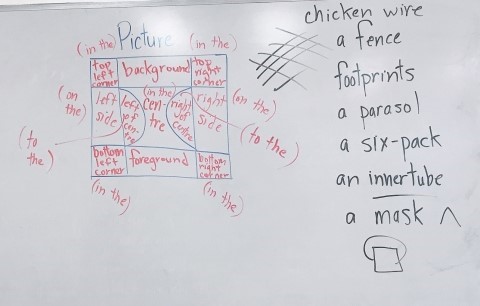 Picture
(in the)
(in the)
top left corner
background
top right corner
(on the)
left side
left of centre
(in the) centre
right of centre
right side
(on the)
(to the)
(to the)
bottom left corner
foreground
bottom right corner
(in the)
(in the)
chicken wire
a fence
footprints
a parasol
a six-pack
an innertube
a mask